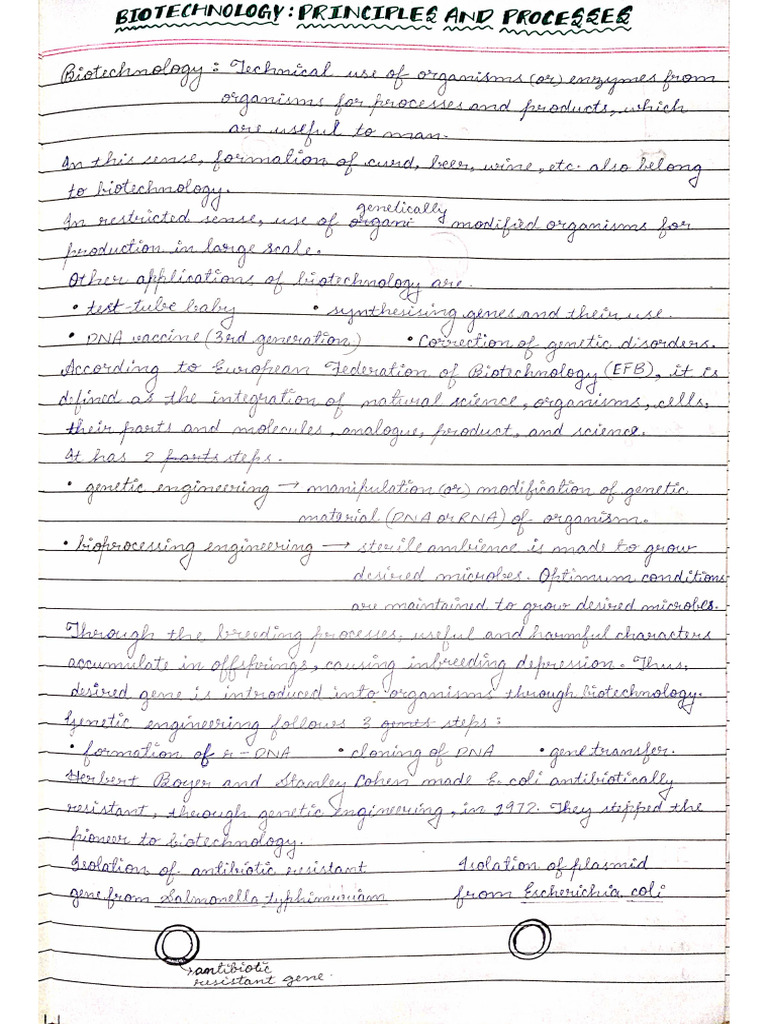 BIOTECHNOLOGY: PRINCIPLES AND PROCESSES
Biotechnology: Technical use of organisms (or) enzymes from
organisms for processes and products, which
are useful to man.
In this sense, formation of curd, beer, wine, etc. also belong
to biotechnology.
genetically
In restricted sense, use of organi modified organisms for
production in large scale.
Other applications of biotechnology are.
• test-tube baby • synthesising genes and their use.
• DNA vaccine (3rd generation) • Correction of genetic disorders.
According to European Federation of Biotechnology (EFB), it is
defined as the integration of natural science, organisms, cells,
their parts and molecules, analogue, product, and science.
It has 2 parts steps.
• genetic engineering → manipulation (or) modification of genetic
material (DNA or RNA) of organism.
• bioprocessing engineering → sterile ambience is made to grow
desired microbes. Optimum conditions
are maintained to grow desired microbes.
Through the breeding processes, useful and harmful characters
accumulate in offsprings, causing inbreeding depression. Thus,
desired gene is introduced into organisms through biotechnology.
Genetic engineering follows 3 steps:
• formation of r-DNA • cloning of DNA • gene transfer.
Herbert Boyer and Stanley Cohen made E. coli antibiotically
resistant, through genetic engineering, in 1972. They stepped the
pioneer to biotechnology.
Isolation of antibiotic resistant Isolation of plasmid
gene from Salmonella typhimurium from Escherichia coli
antibiotic
resistant gene.